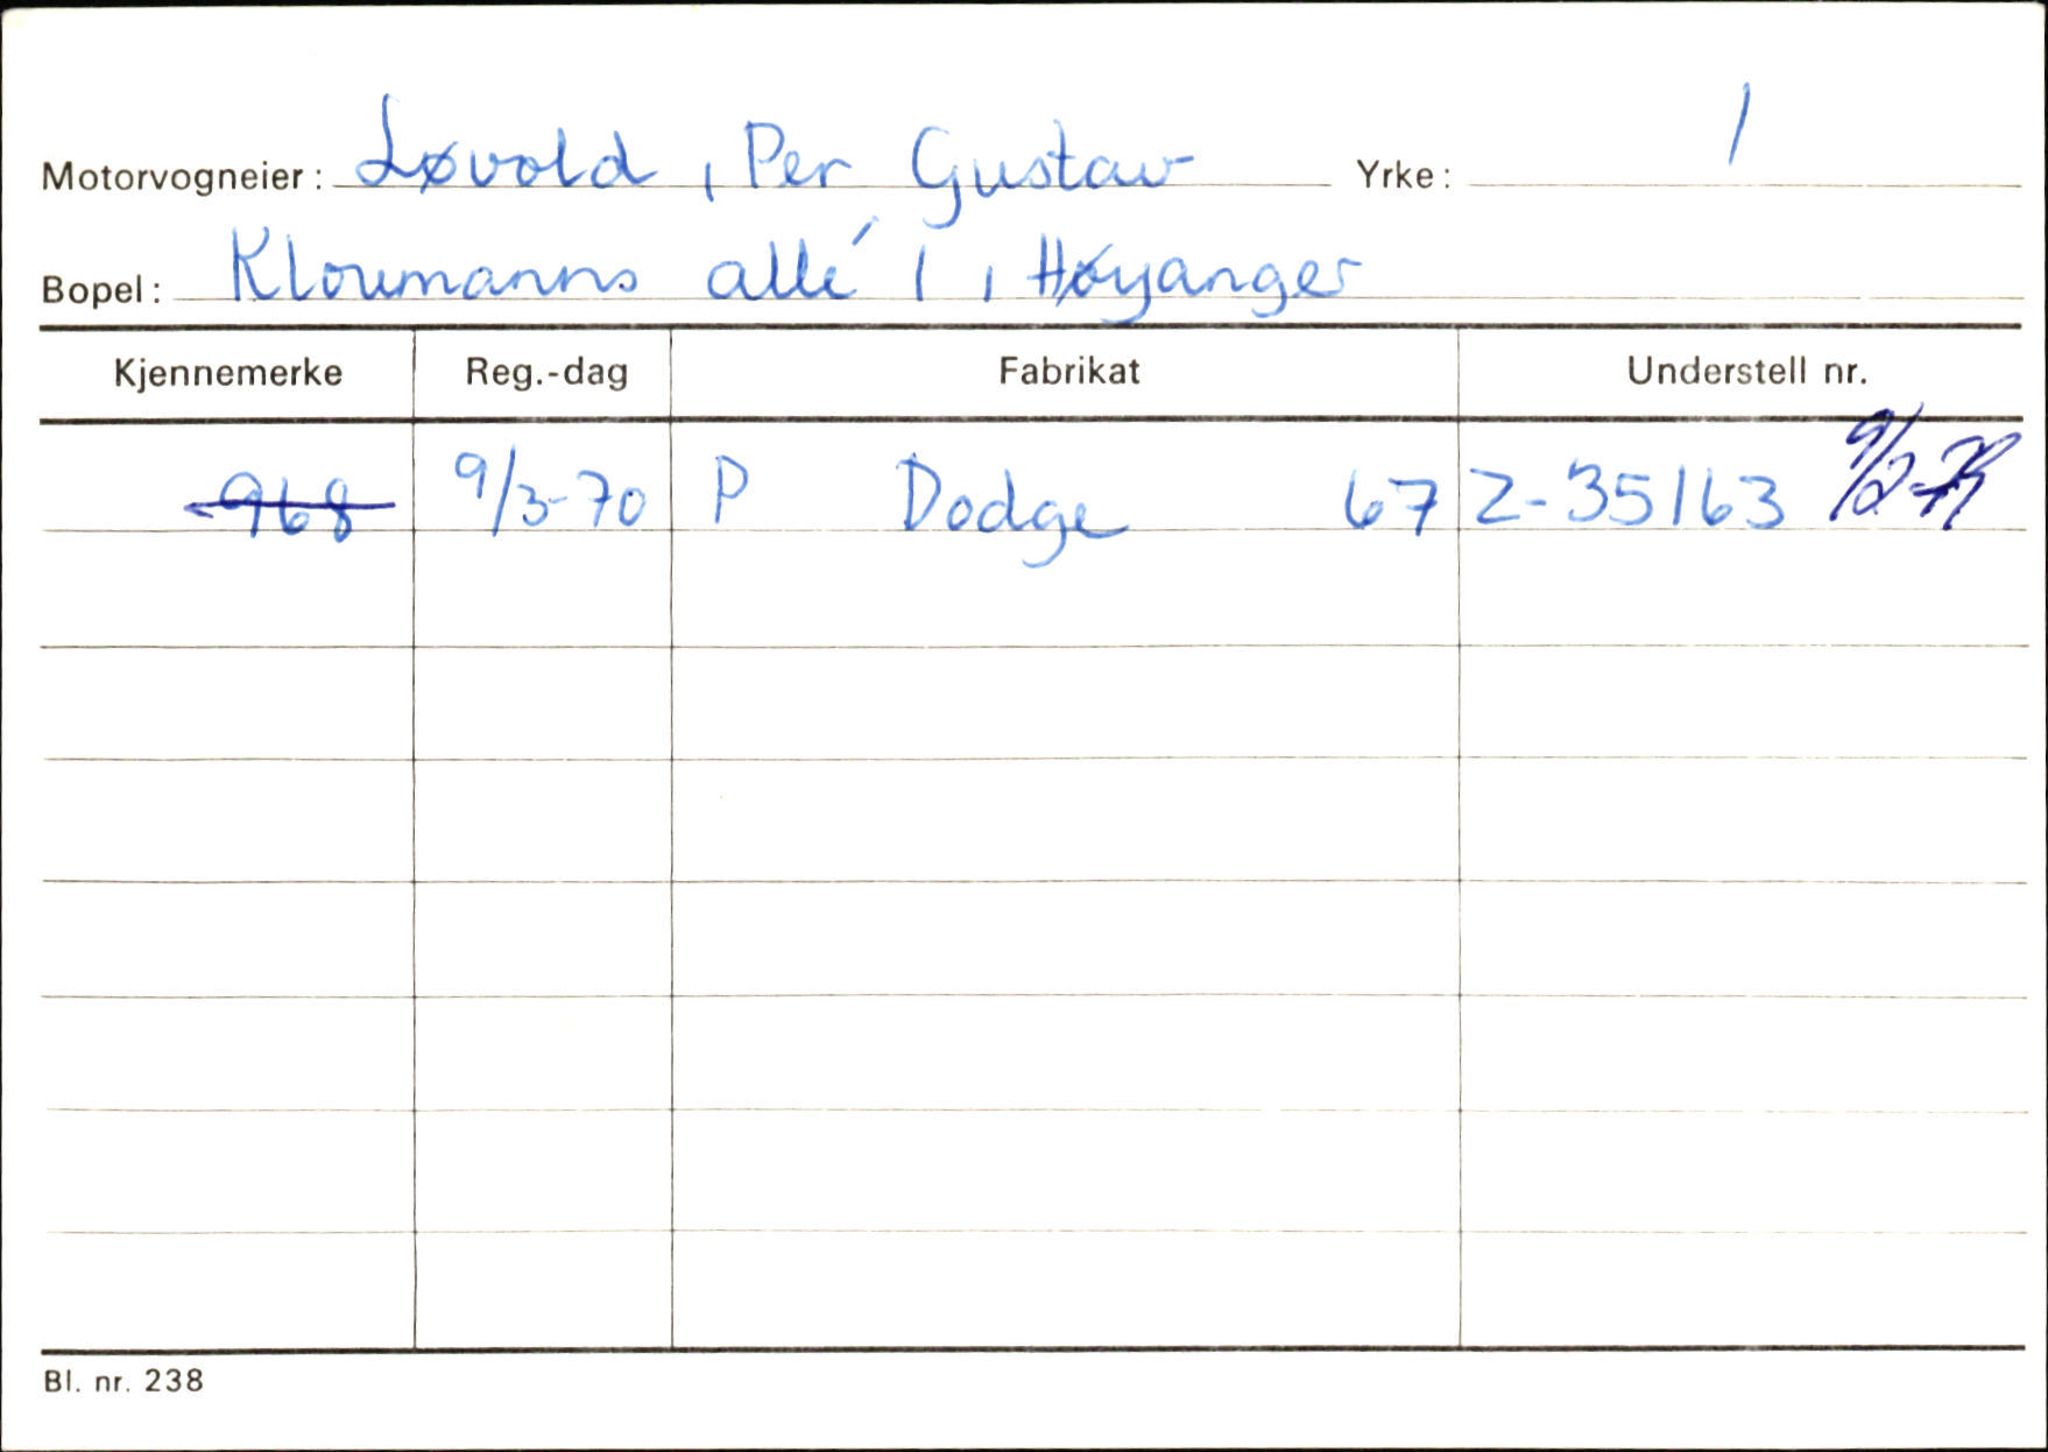 Motorvogneier: Løvold, Per Gustav Yrke: /
Bopel: Kloumanns allé 1, Høyanger
Kjennemerke Reg.-dag Fabrikat Understell nr.
968 9/3-70 P Dodge 67 Z-35163 9/2-
Bl. nr. 238